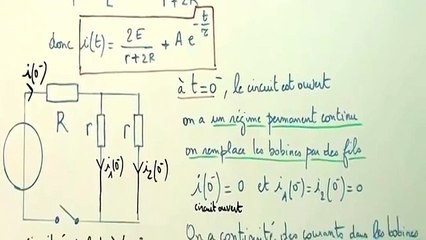 r+2R
donc i(t) = 2E / (r+2R) + A e^(-t/τ)
i(0⁻)
R
r
r
i₁(0⁻)
i₂(0⁻)
à t=0⁻, le circuit est ouvert
on a un régime permanent continu
on remplace les bobines par des fils
i(0⁻) = 0 et i₁(0⁻) = i₂(0⁻) = 0
circuit ouvert
On a continuité des courants dans les bobines